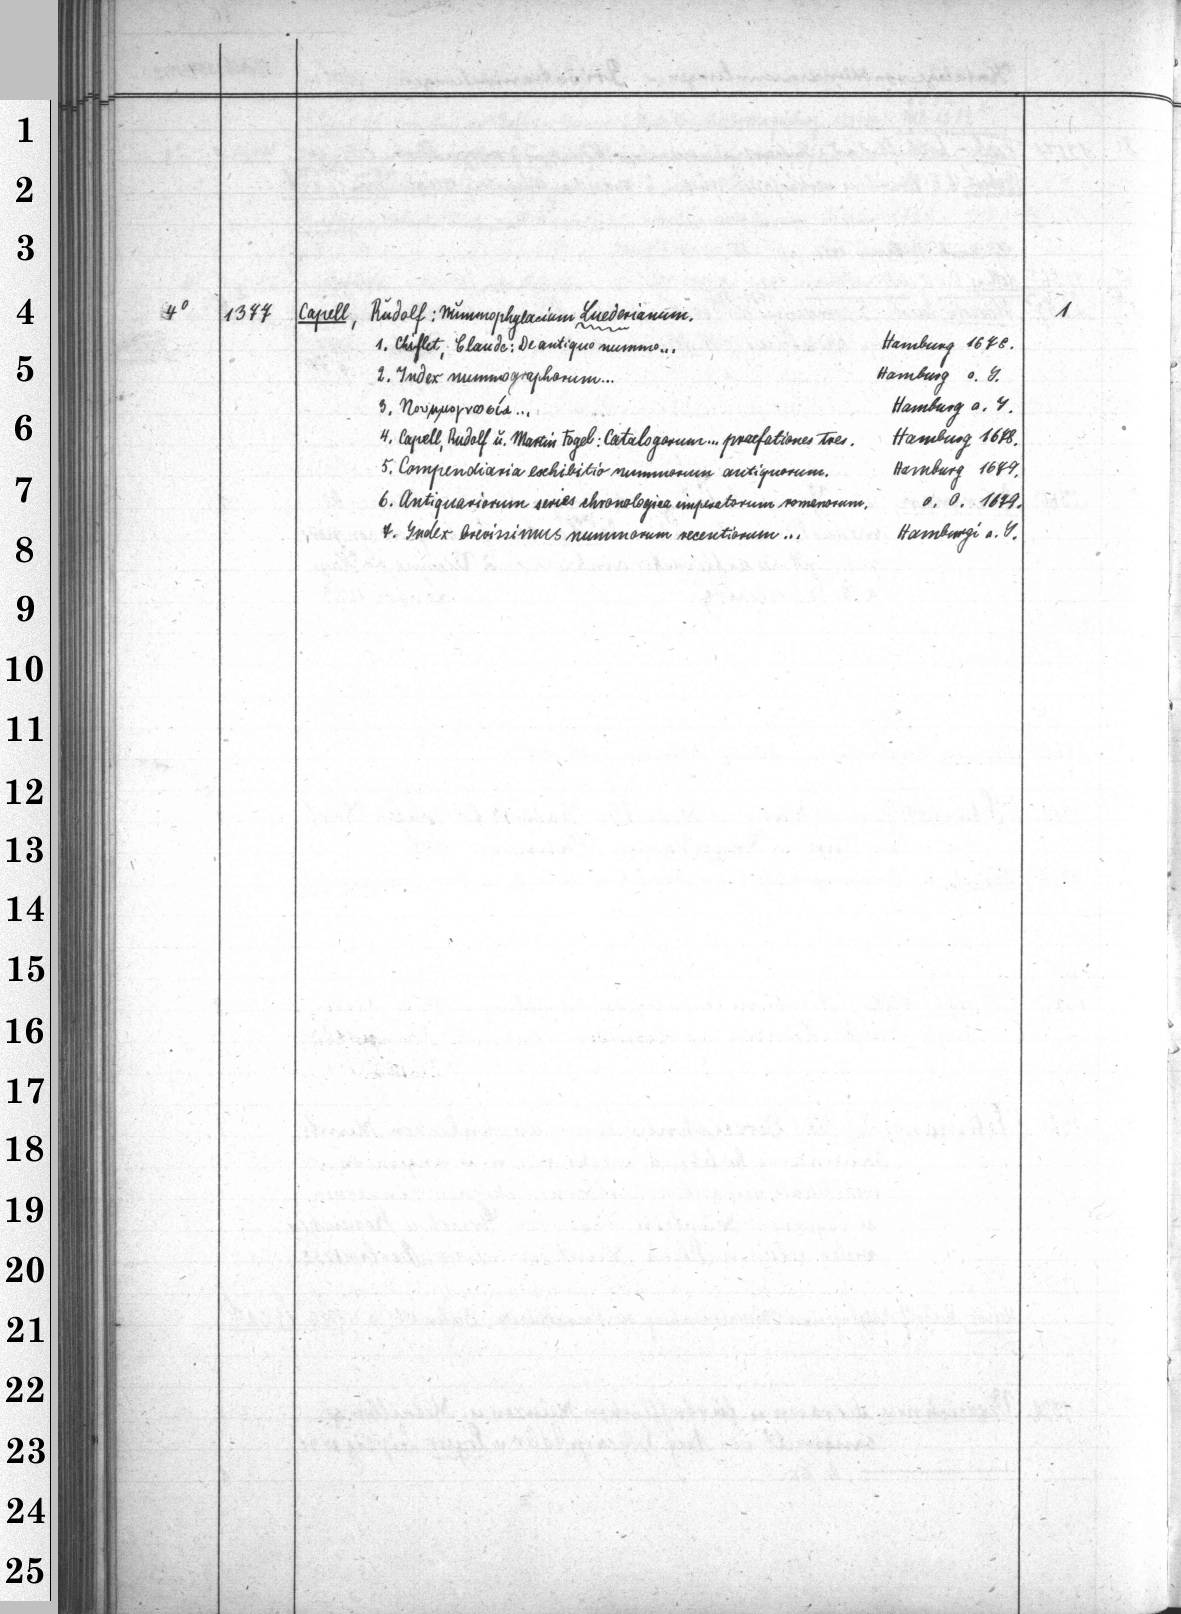 1
2
3
4
5
6
7
8
9
10
11
12
13
14
15
16
17
18
19
20
21
22
23
24
25
4° 1377 Capell, Rudolf: Nummophylacium Luederianum. 1
1. Chiflet, Claude: De antiquo nummo... Hamburg 1678.
2. Index nummographorum... Hamburg o. J.
3. Νουμμογνωσία... Hamburg o. J.
4. Capell, Rudolf u. Martin Fogel: Catalogorum... praefationes tres. Hamburg 1678.
5. Compendiaria exhibitio nummorum antiquorum. Hamburg 1679.
6. Antiquariorum series chronologica imperatorum romanorum. o. O. 1679.
7. Index brevissimus nummorum recentiorum... Hamburgi o. J.